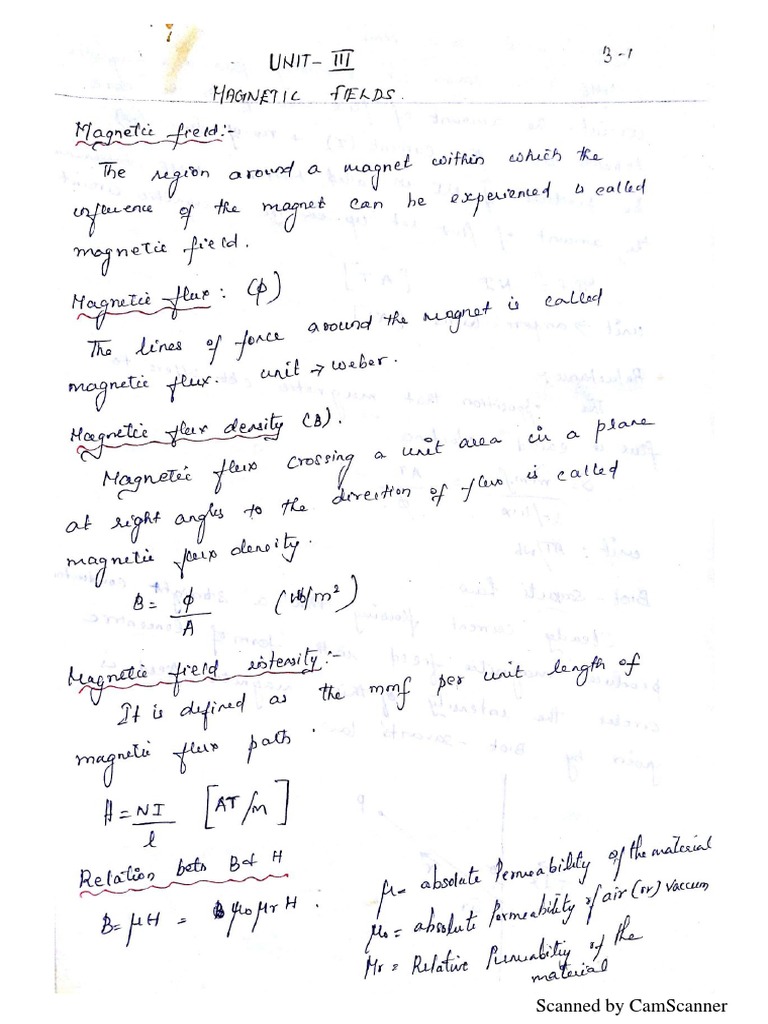 UNIT-III 3-1
MAGNETIC FIELDS.
Magnetic field:-
The region around a magnet within which the
influence of the magnet can be experienced is called
magnetic field.
Magnetic flux: (ϕ)
The lines of force around the magnet is called
magnetic flux. unit → weber.
Magnetic flux density (B).
Magnetic flux crossing a unit area in a plane
at right angles to the direction of flux is called
magnetic flux density.
B = ϕ/A (Wb/m²)
Magnetic field intensity:-
It is defined as the mmf per unit length of
magnetic flux path.
H = NI/l [AT/m]
Relation betn B & H
B = μH = μ₀μr H.
μ = absolute Permeability of the material
μ₀ = absolute Permeability of air (or) vaccum
Mr = Relative Permeability of the
material
Scanned by CamScanner